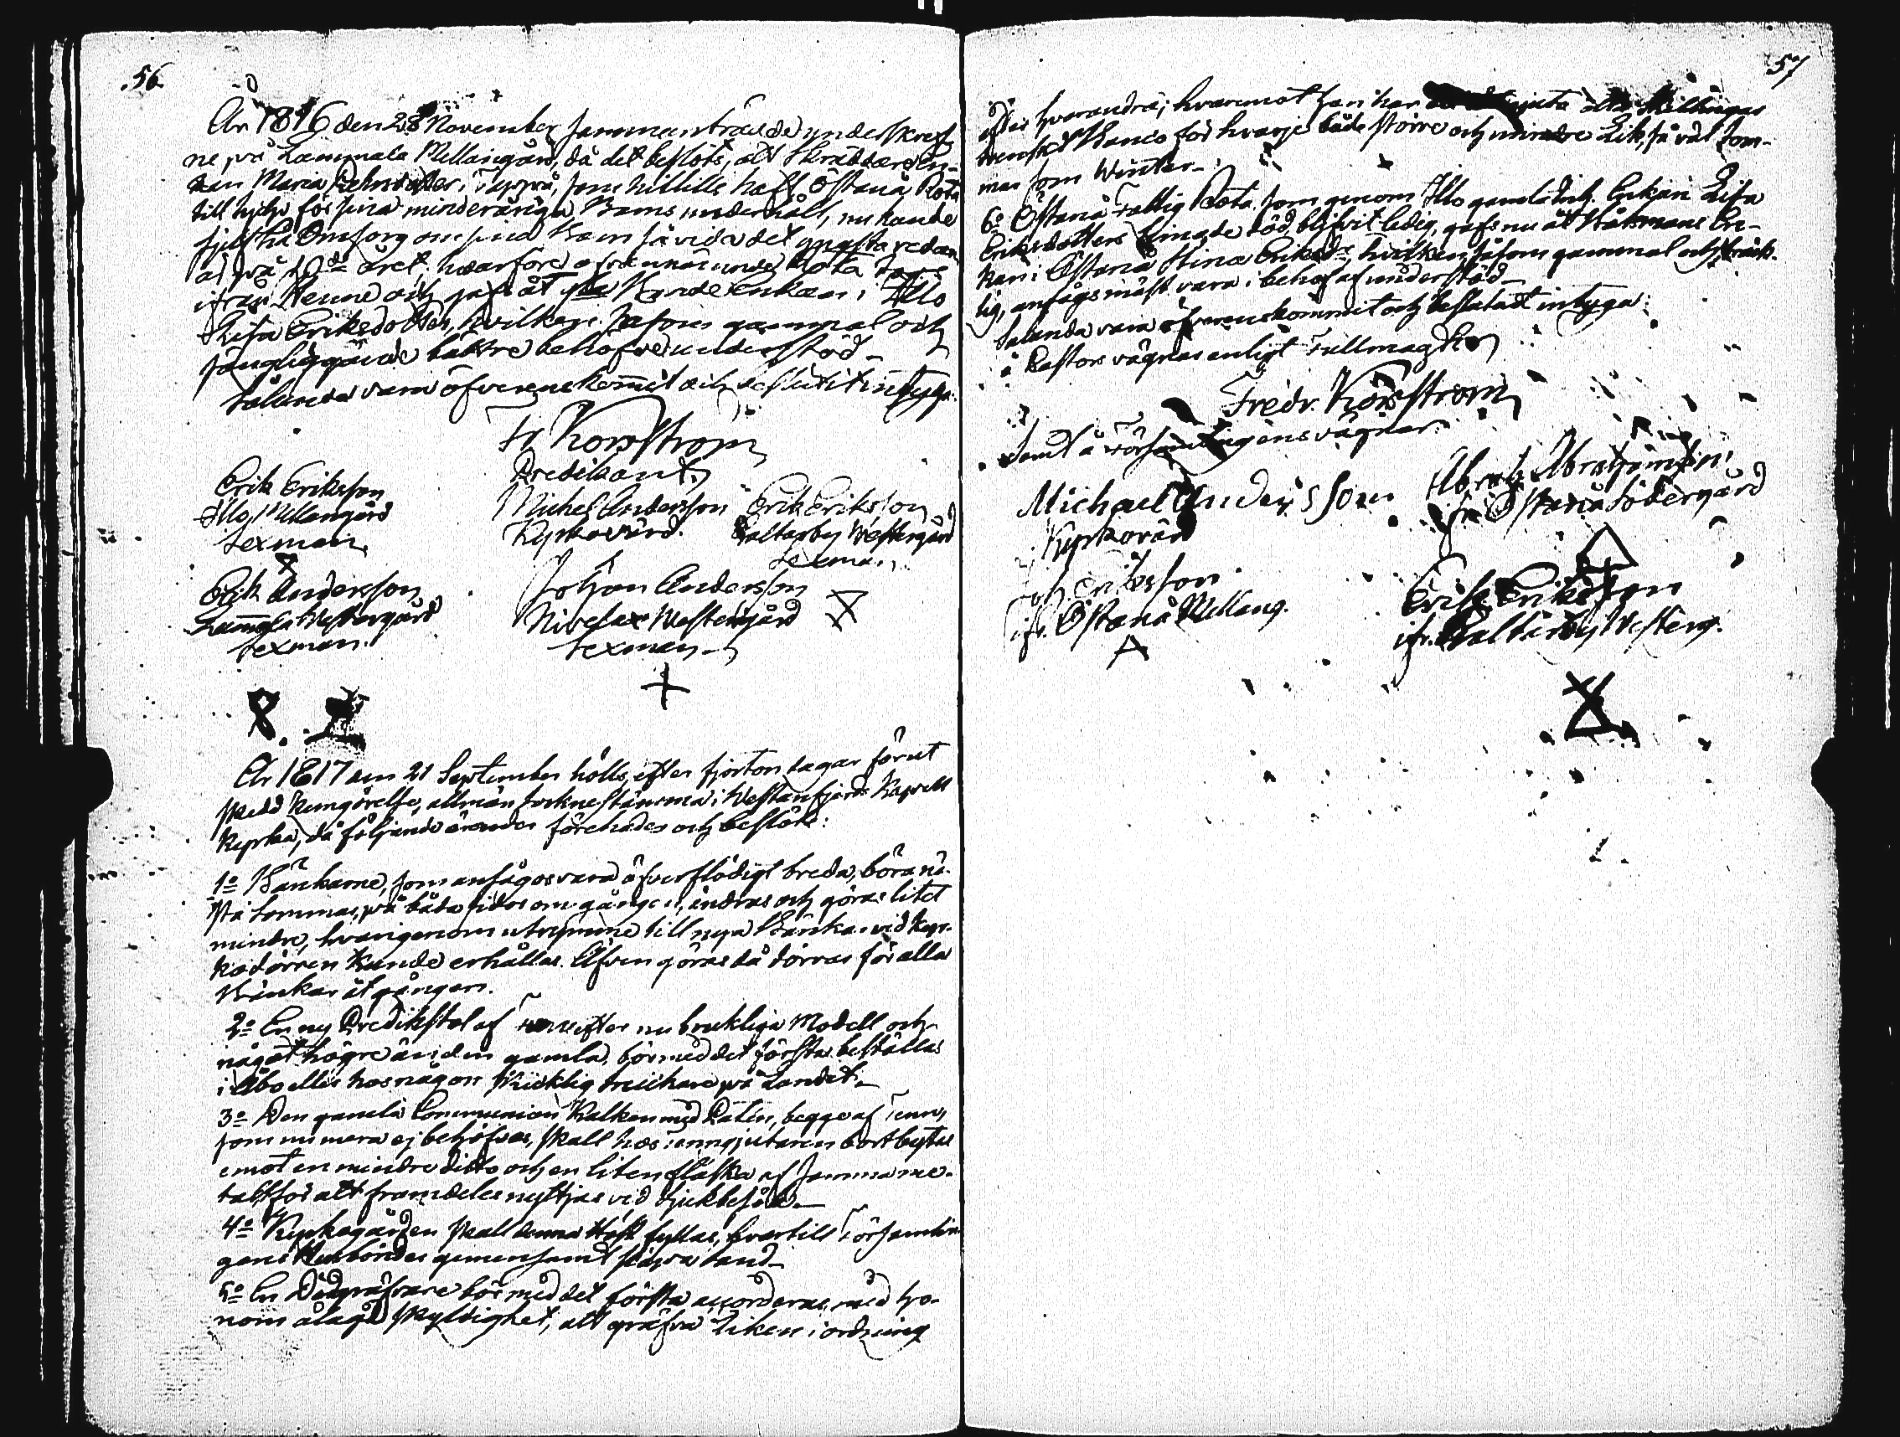 56.
År 1816 den 28 November sammanträdde underskref-
ne på Lammala Mellangård, då det beslöts, att Skräddare En-
kan Maria i Pyppå, som hittills haft Östanå Rota
till hjelp för sina minderåriga Barns underhåll, nu kunde
sjelf ha omsorg om sina Barn så vida det yngsta redan
är på året; hvarföre ofvannämnde Rota togs
ifrån Henne och gafs åt Enkan i Illo
Lisa Eriksdotter, hvilken såsom gammal och
sängliggande bättre behöfver understöd_
Sålunda vara öfverenskommit och beslutit intyga:
Fr. Korsström
Predikant.
Erik Eriksson
Illo Mellangård
Sexman.
Michel Andersson
Kyrkovärd.
Erik Eriksson
Galtarby Westergård
Sexman.
Erik Andersson
Lammala Westergård
Sexman.
Johan Andersson
Nivelax Westergård
Sexman_
År 1817 den 21 September hölls, efter fjorton dagar förut
skedd kungörelse, allmän Sockne stämma i Westanfjärds Kapell
Kyrka, då följande ärender förehades och beslöts:
1o Bänkarne, som ansågos vara öfverflödigt breda, böra nä-
sta Sommar, på båda sidor om gången, ändras och göras litet
mindre, hvarigenom utrymme till nya Bänkar vid Kyr-
kodörren kunde erhållas. Äfven göras då dörrar för alla
Bänkar åt gången.
2o En ny Predikstol af efter nu brukliga Modell och
något högre än den gamla, bör med det första beställas
i Åbo eller hos någon skicklig snickare på Landet._
3o Den gamla Communion Kalken med Patén, begge af Tenn,
som nu mera ej behöfves, skall hos Tenngjutaren bortbytas
emot en mindre ditto och en liten flaska af samma me-
tall för att framdeles nyttjas vid sjukbesök._
4o Kyrkogården skall denna Höst fyllas, hvartill Församlin-
gens Husbönder gemensamt släpa sand_
5o En Dödgräfvare bör med det första accorderas, med ho-
nom ålagd skyldighet, att gräfva Liken i ordning
57
efter hvarandra; hvaremot han har njuta åtta Skillingar
Svensk Banco för hvarje både större och mindre Lik, så väl Som-
mar som Winter._
6o Östanå Fattig Rota, som genom Illo gamla Enkan Lisa
Eriksdotters timade död blifvit ledig, gafs nu åt Enk-
kan i Östanå Stina Eriksdr, hvilken såsom gammal och bräck-
lig, ansågs mäst vara i behof af understöd_
Sålunda vara öfverenskommit och beslutadt intyga:
å Pastors vägnar enligt Fullmagt
Fredr. Korsström
samt å Församlingens vägnar:
Michael Andersson
Kyrkovärd
Abrah. Abrahamsson
fr. Östanå Södergård
Joh. Eriksson
ifr. Östanå Mellang.
Erik Eriksson
ifr. Galtarby Westerg.